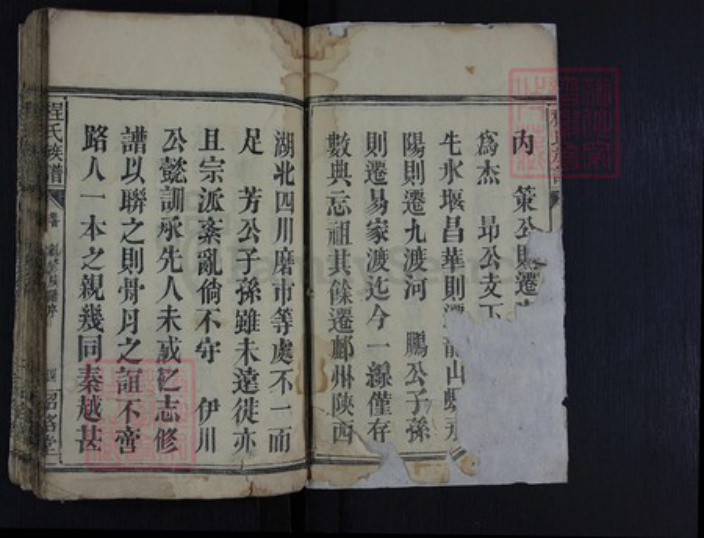 內 策公則遷
爲杰 昂公支
生水堰昌華則
陽則遷九渡河 鵬公子孫
則遷易家渡迄今一線僅存
數典忘祖其餘遷鄜州陝西
湖北四川磨市等處不一而
足 芳公子孫雖未遠徙亦
且宗派紊亂倘不守 伊川
公懿訓承先人未成之志修
譜以聯之則骨月之誼不啻
路人一本之親幾同秦越甚
程氏族譜